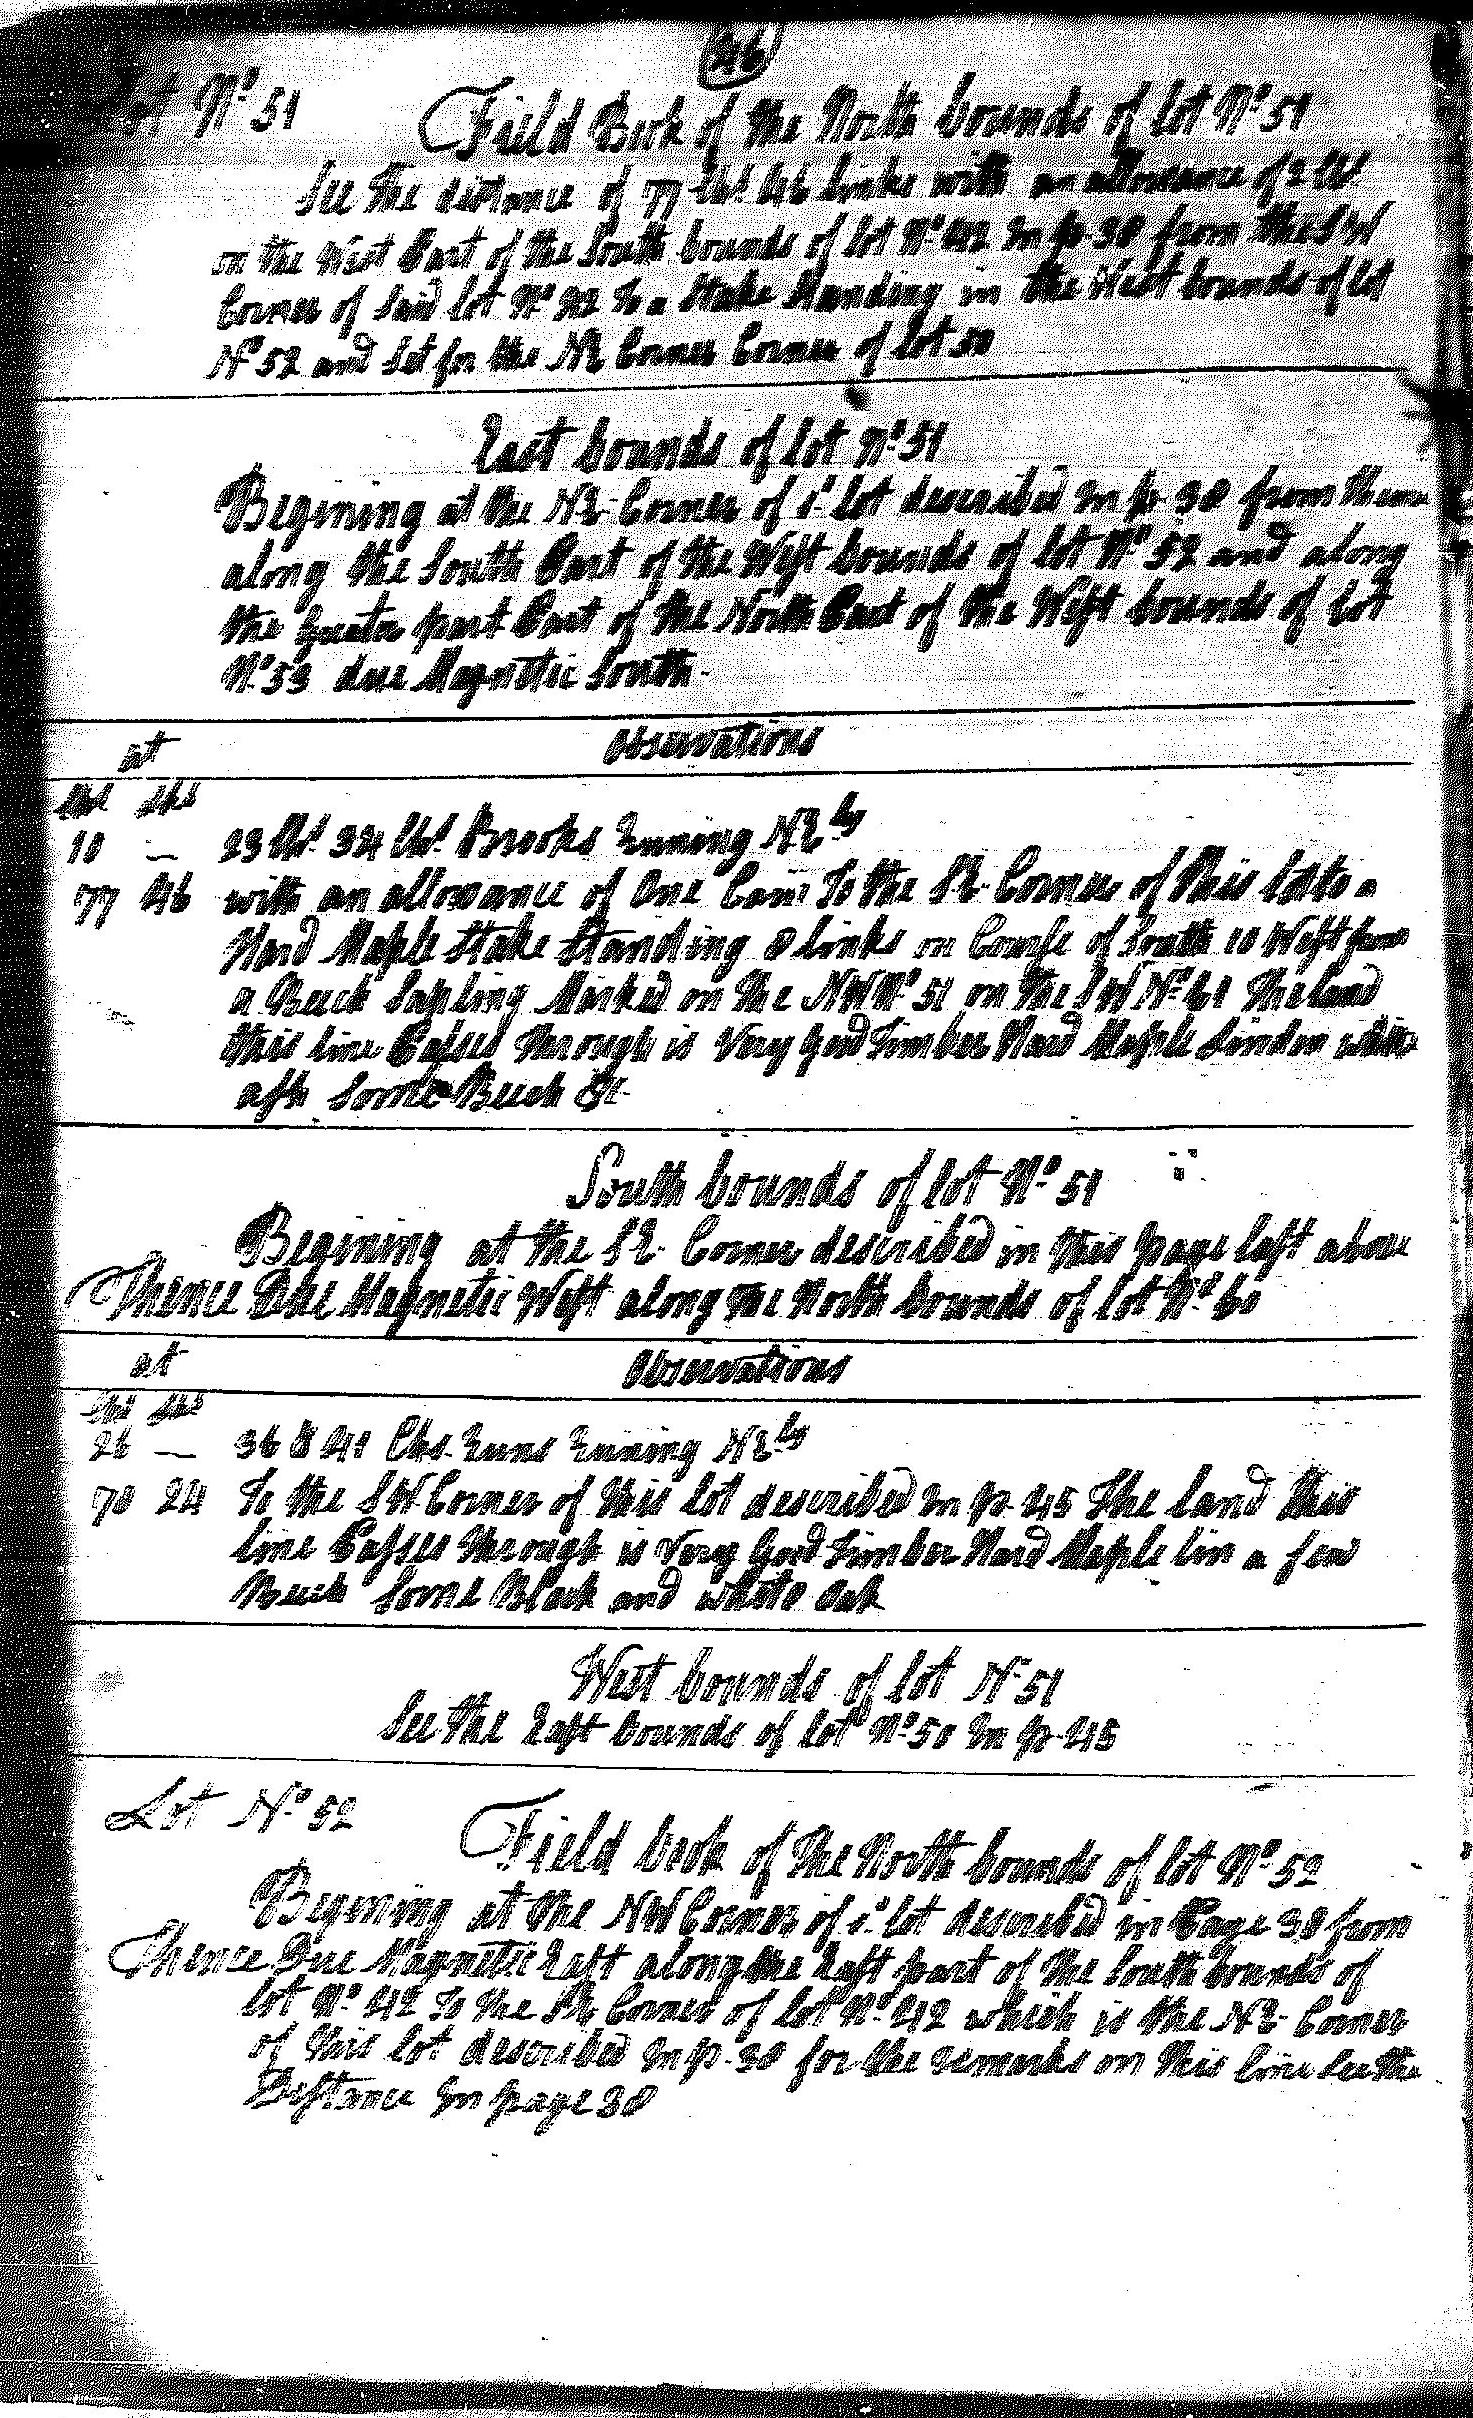 46
Lot No. 51
Field Book of the North bounds of lot No. 51
See the distance of 77 Chs. 46 links with an allowance of 2 lks
on the West Part of the South bounds of lot No. 42 In p. 38 from the SW
Corner of Said lot No. 42 To a Stake Standing in the West bounds of lot
No. 52 and Set for the NE Corner Corner of lot 50
East bounds of lot No. 51
Begining at the NE Corner of s. lot described In p. 38 from thence
along the South Part of the West bounds of lot No. 52 and along
the Greater part Part of the North Part of the West bounds of lot
No. 53 due Magnetic South
at Observations
Chs Lks
10 — 23 Chs. 34 Chs. Brooks Runing NEly
77 46 with an allowance of One To the SE Corner of This lot to a
Hard Maple Stake Standing 8 links on Course of South 10 West from
a Beech Sapling Marked on the NW No. 51 on the SW No. 61 The land
this line Passes Through is Very Good Timber Hard Maple Linden white
ash Some Beech &c
South bounds of lot No. 51
Begining at the SE Corner described in this page last above
Thence Due Magnetic West along the North bounds of lot No. 60
at Observations
Chs Lks
26 — 36 & 41 Chs. Runs Runing NEly
70 24 To the SW Corner of this lot described In p. 45 The land this
line Passes Through is Very Good Timber Hard Maple lin a few
Beech Some Black and white Oak
West bounds of lot No 51
See the East bounds of lot No. 50 In p. 45
Lot No. 52
Field book of The North bounds of lot No. 52
Begining at the NW Corner of s. lot described in Page 38 from
Thence Due Magnetic East along the East part of the South bounds of
lot No. 42 To the SE Corner of lot No. 42 which is the NE Corner
of this lot described In p. 38 for the remarks on this line See the
Distance In page 38